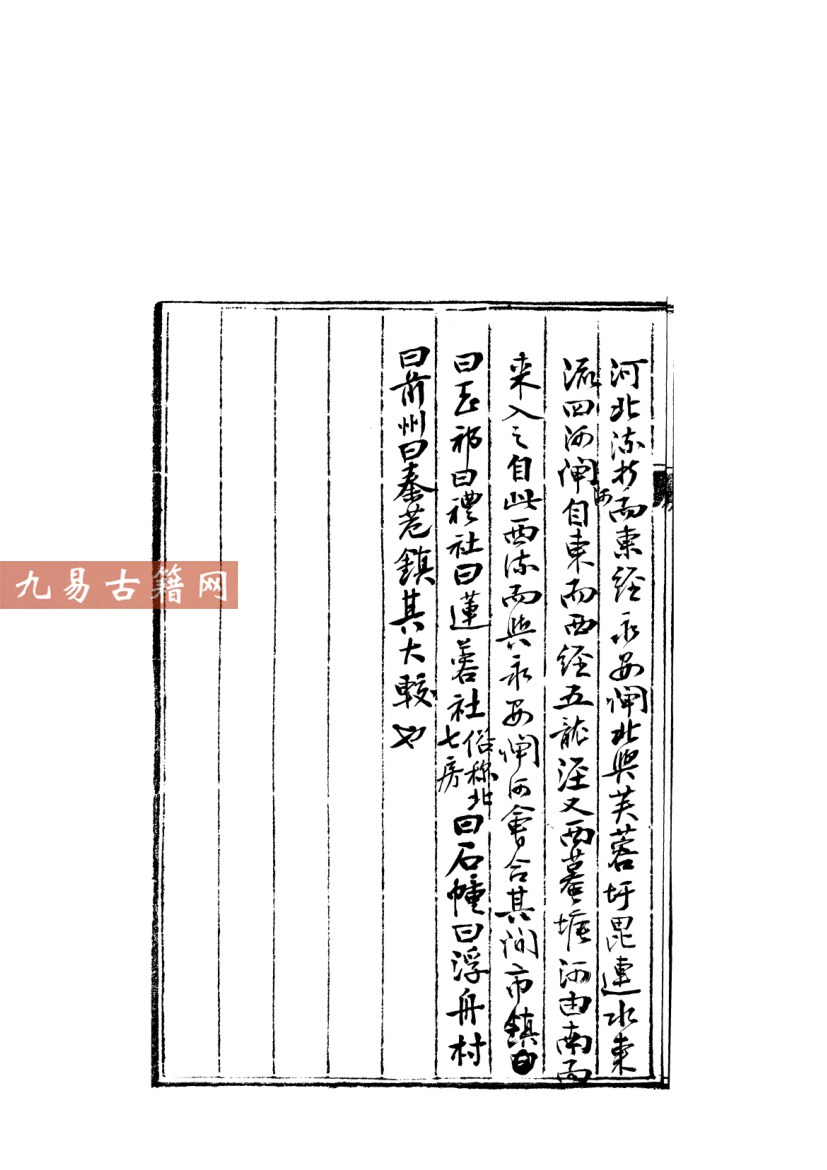 河北流折而東經永安閘北與芙蓉圩毘連水東
流四河閘河自東而西經五龍涇又西萬塘河由南而
來入之自此西流而與永安閘河會合其間市鎮曰
曰玉祁曰禮社曰蓮蓉社俗稱北七房曰石幢曰浮舟村
曰前州曰秦巷鎮其大較也
九易古籍网